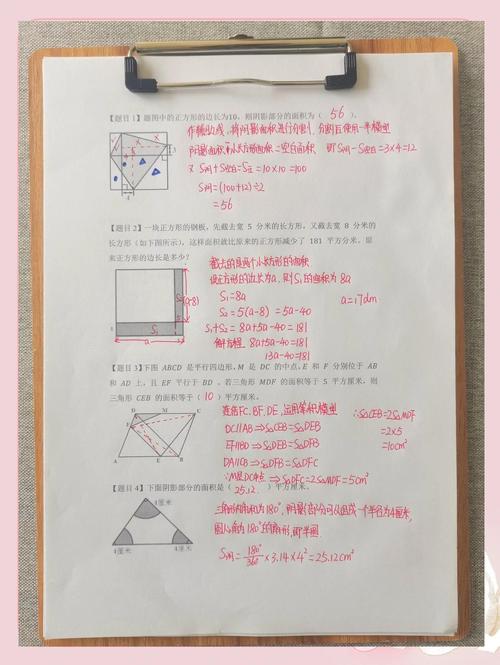 【题目1】题图中的正方形的边长为10，则阴影部分的面积为（ 56 ）。
作辅助线，将阴影面积进行分割，分割后使用一半模型
S阴+S空白=S正=10×10=100
S阴=(100+12)÷2
=56
3
4
【题目2】一块正方形的钢板，先截去宽 5 分米的长方形，又截去宽 8 分米的
长方形（如下图所示），这样面积就比原来的正方形减少了 181 平方分米，原
来正方形的边长是多少？
截去的是两个小长方形的面积
设正方形的边长为a，则S₁的面积为8a
S₁=8a
a=17dm
S₂=5(a-8)=5a-40
S₁+S₂=8a+5a-40=181
解方程 8a+5a-40=181
13a-40=181
S₂
(a-8)
S₁
a
【题目3】下图 ABCD 是平行四边形，M 是 DC 的中点，E 和 F 分别位于 AB
和 AD 上，且 EF 平行于 BD 。若三角形 MDF 的面积等于 5 平方厘米，则
三角形 CEB 的面积等于（ 10 ）平方厘米。
连结FC，BF，DE，运用等积模型
∴S△CEB=2S△MDF
DC∥AB⇒S△CEB=S△DEB
=2×5
EF∥BD⇒S△DEB=S△DFB
=10cm²
DA∥CB⇒S△DFB=S△DFC
∵M是DC中点⇒S△DFC=2S△MDF=5cm²
D M C
F
A E B
【题目4】下面阴影部分的面积是（ 25.12 ）平方厘米。
三角形内角和为180°，阴影部分可以组成一个半径为4厘米，
圆心角为180°的扇形，即半圆
S阴=180°/360°×3.14×4²=25.12cm²
4厘米
4厘米
4厘米